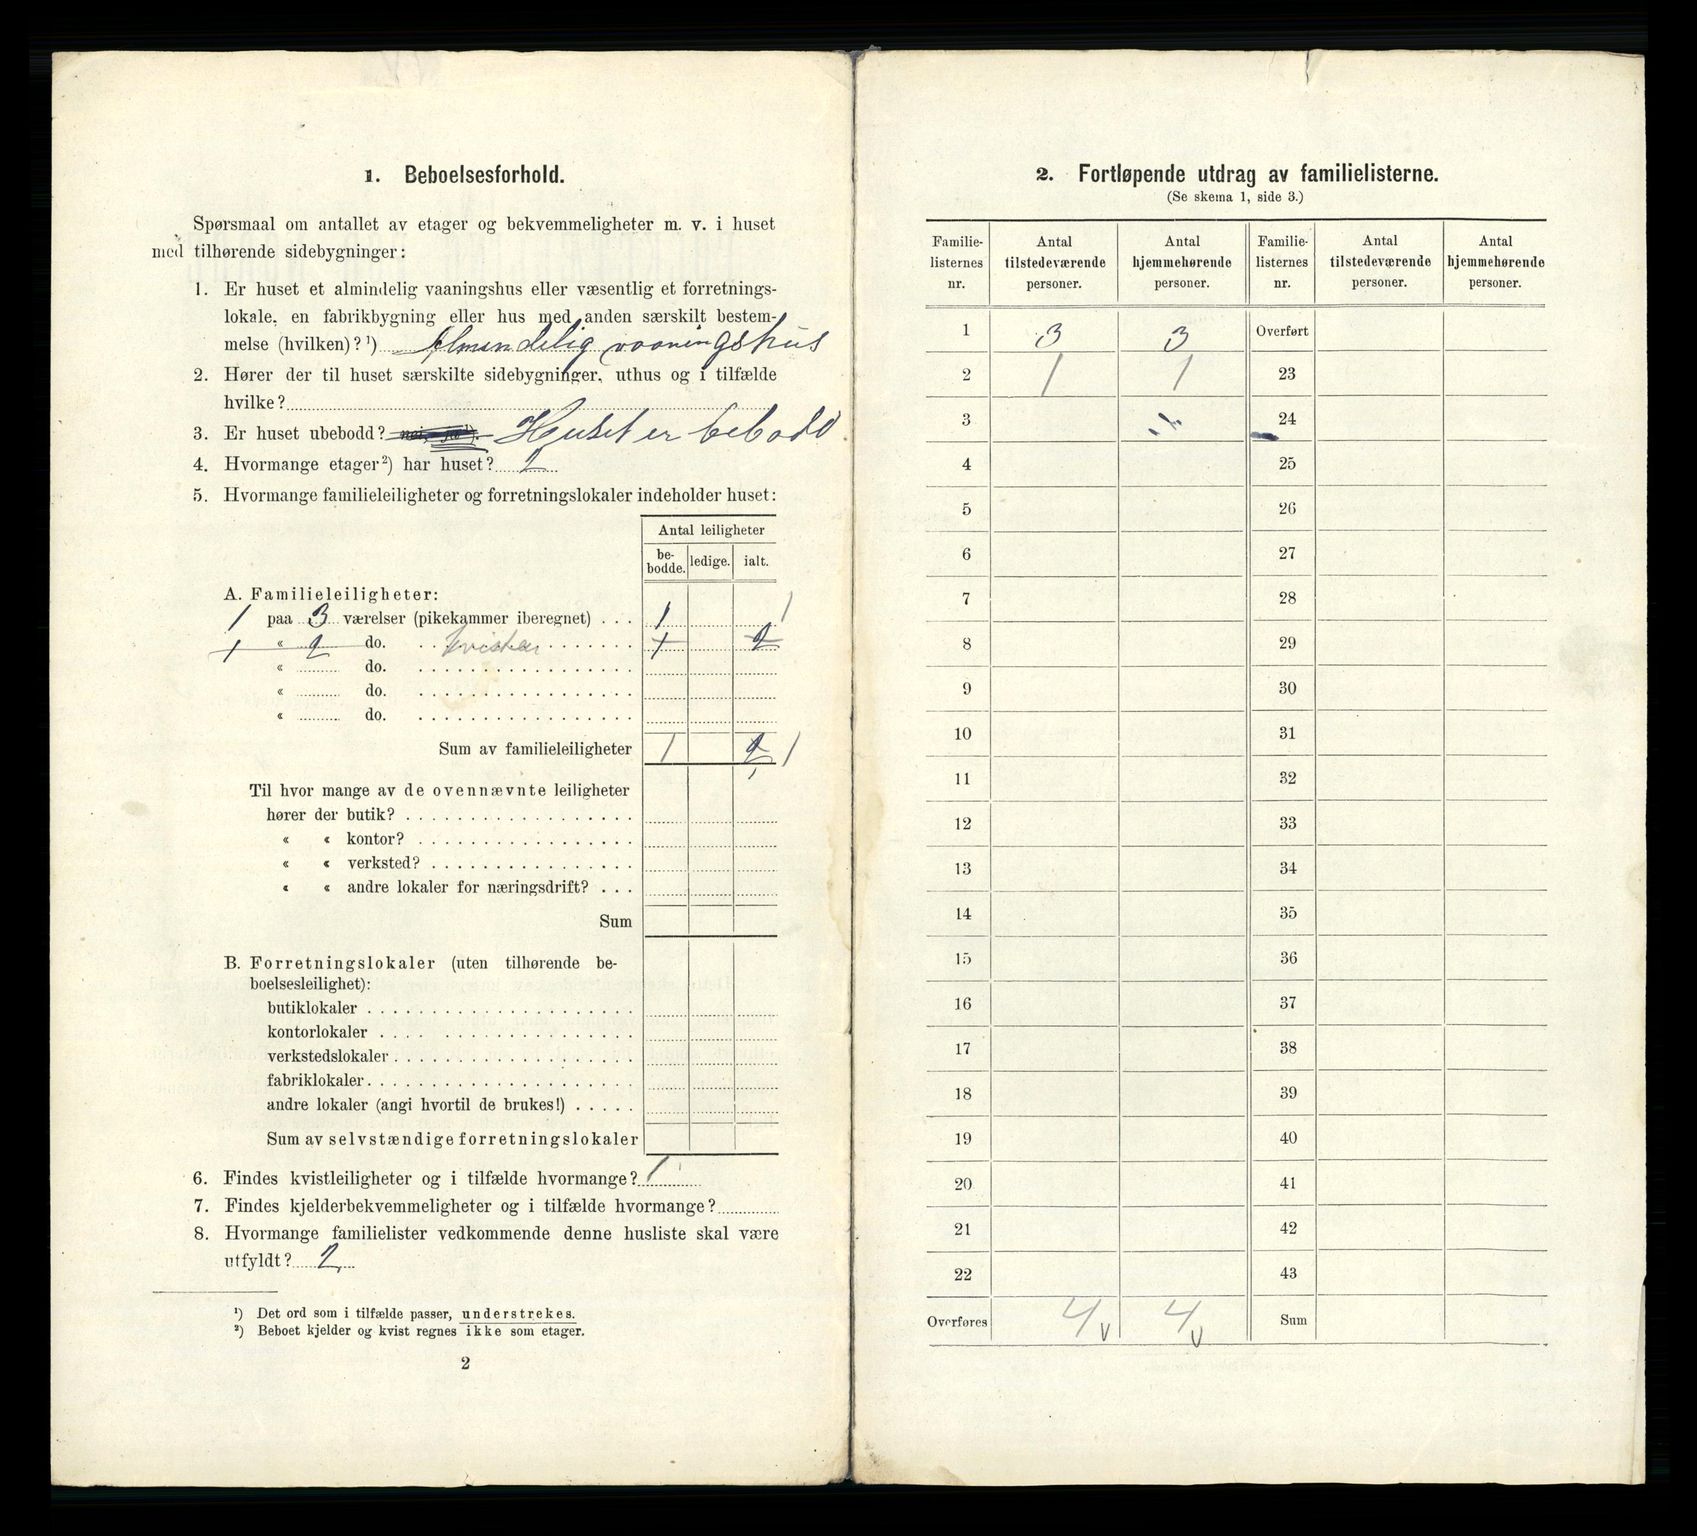 1. Beboelsesforhold.
Spørsmaal om antallet av etager og bekvemmeligheter m. v. i huset
med tilhørende sidebygninger:
1. Er huset et almindelig vaaningshus eller væsentlig et forretnings-
lokale, en fabrikbygning eller hus med anden særskilt bestem-
melse (hvilken)?¹) Almindelig vaaningshus
2. Hører der til huset særskilte sidebygninger, uthus og i tilfælde
hvilke?
3. Er huset ubebodd? Huset er bebodd
4. Hvormange etager²) har huset? 2
5. Hvormange familieleiligheter og forretningslokaler indeholder huset:
Antal leiligheter
be-bodde. ledige. ialt.
A. Familieleiligheter:
1 paa 3 værelser (pikekammer iberegnet) . . . 1 1
1 « 2 do. . . kvister . . . . . . 1 2
« do. . . . . . . . . . . . . . . . .
« do. . . . . . . . . . . . . . . . .
« do. . . . . . . . . . . . . . . . .
Sum av familieleiligheter 1 2 1
Til hvor mange av de ovennævnte leiligheter
hører der butik? . . . . . . . . . . . . . . . . .
« « kontor? . . . . . . . . . . . . . . . .
« « verksted? . . . . . . . . . . . . . . .
« « andre lokaler for næringsdrift? . . .
Sum
B. Forretningslokaler (uten tilhørende be-
boelsesleilighet):
butiklokaler . . . . . . . . . . . . . . . . . . . .
kontorlokaler . . . . . . . . . . . . . . . . . . .
verkstedslokaler . . . . . . . . . . . . . . . . . .
fabriklokaler . . . . . . . . . . . . . . . . . . . .
andre lokaler (angi hvortil de brukes!) . . . . .
Sum av selvstændige forretningslokaler
6. Findes kvistleiligheter og i tilfælde hvormange? 1
7. Findes kjelderbekvemmeligheter og i tilfælde hvormange?
8. Hvormange familielister vedkommende denne husliste skal være
utfyldt? 2
¹) Det ord som i tilfælde passer, understrekes.
²) Beboet kjelder og kvist regnes ikke som etager.
2
2. Fortløpende utdrag av familielisterne.
(Se skema 1, side 3.)
Familie- Antal Antal Familie- Antal Antal
listernes tilstedeværende hjemmehørende listernes tilstedeværende hjemmehørende
nr. personer. personer. nr. personer. personer.
1 3 3 Overført
2 1 1 23
3 24
4 25
5 26
6 27
7 28
8 29
9 30
10 31
11 32
12 33
13 34
14 35
15 36
16 37
17 38
18 39
19 40
20 41
21 42
22 43
Overføres 4 v 4 v Sum